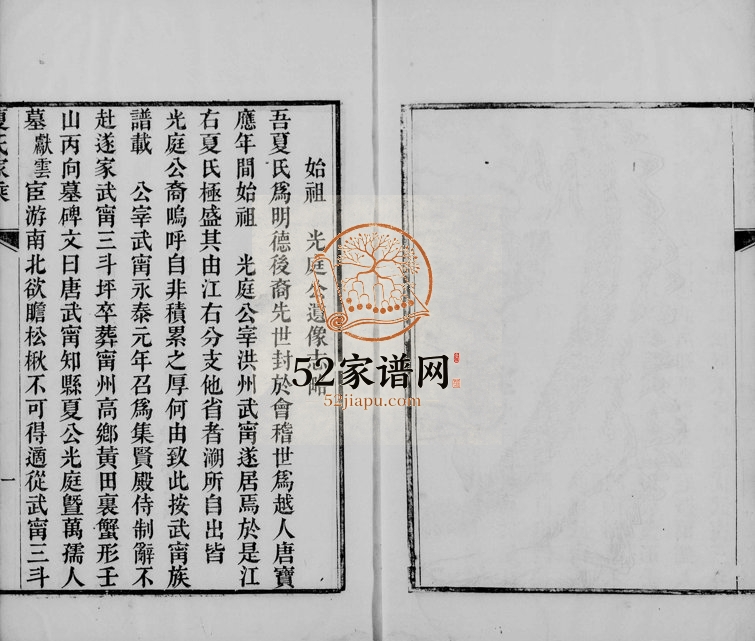 始祖 光庭公遺像
吾夏氏爲明德後裔先世封於會稽世爲越人唐寶
應年間始祖 光庭公宰洪州武甯遂居焉於是江
右夏氏極盛其由江右分支他省者溯所自出皆
光庭公裔嗚呼自非積累之厚何由致此按武甯族
譜載 公宰武甯永泰元年召爲集賢殿侍制辭不
赴遂家武甯三斗坪卒葬甯州高鄉黃田裏蟹形壬
山丙向墓碑文曰唐武甯知縣夏公光庭暨萬孺人
墓獻雲宦游南北欲瞻松楸不可得適從武甯三斗
夏氏家乘
一
52家谱网
52jiapu.com